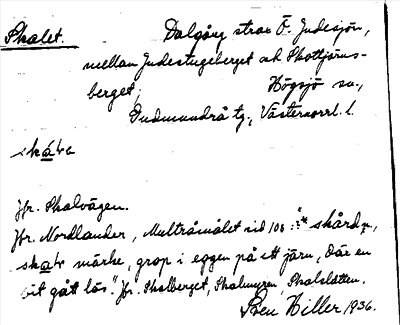 Skalet. Dalgång strax Ö. Judesjön,
mellan Judestugeberget och Skottjärns-
berget, Högsjö sn,
Gudmundrå tg., Västernorrl. l.
ska
Jfr. Skalvägen.
Jfr. Nordlander, Multråmålet sid 108: "skård n,
märke, grop i eggen på ett järn, där en
bit gått lös." Jfr. Skalberget, Skalmyren, Skalslåtten.
Sven Hiller 1936.